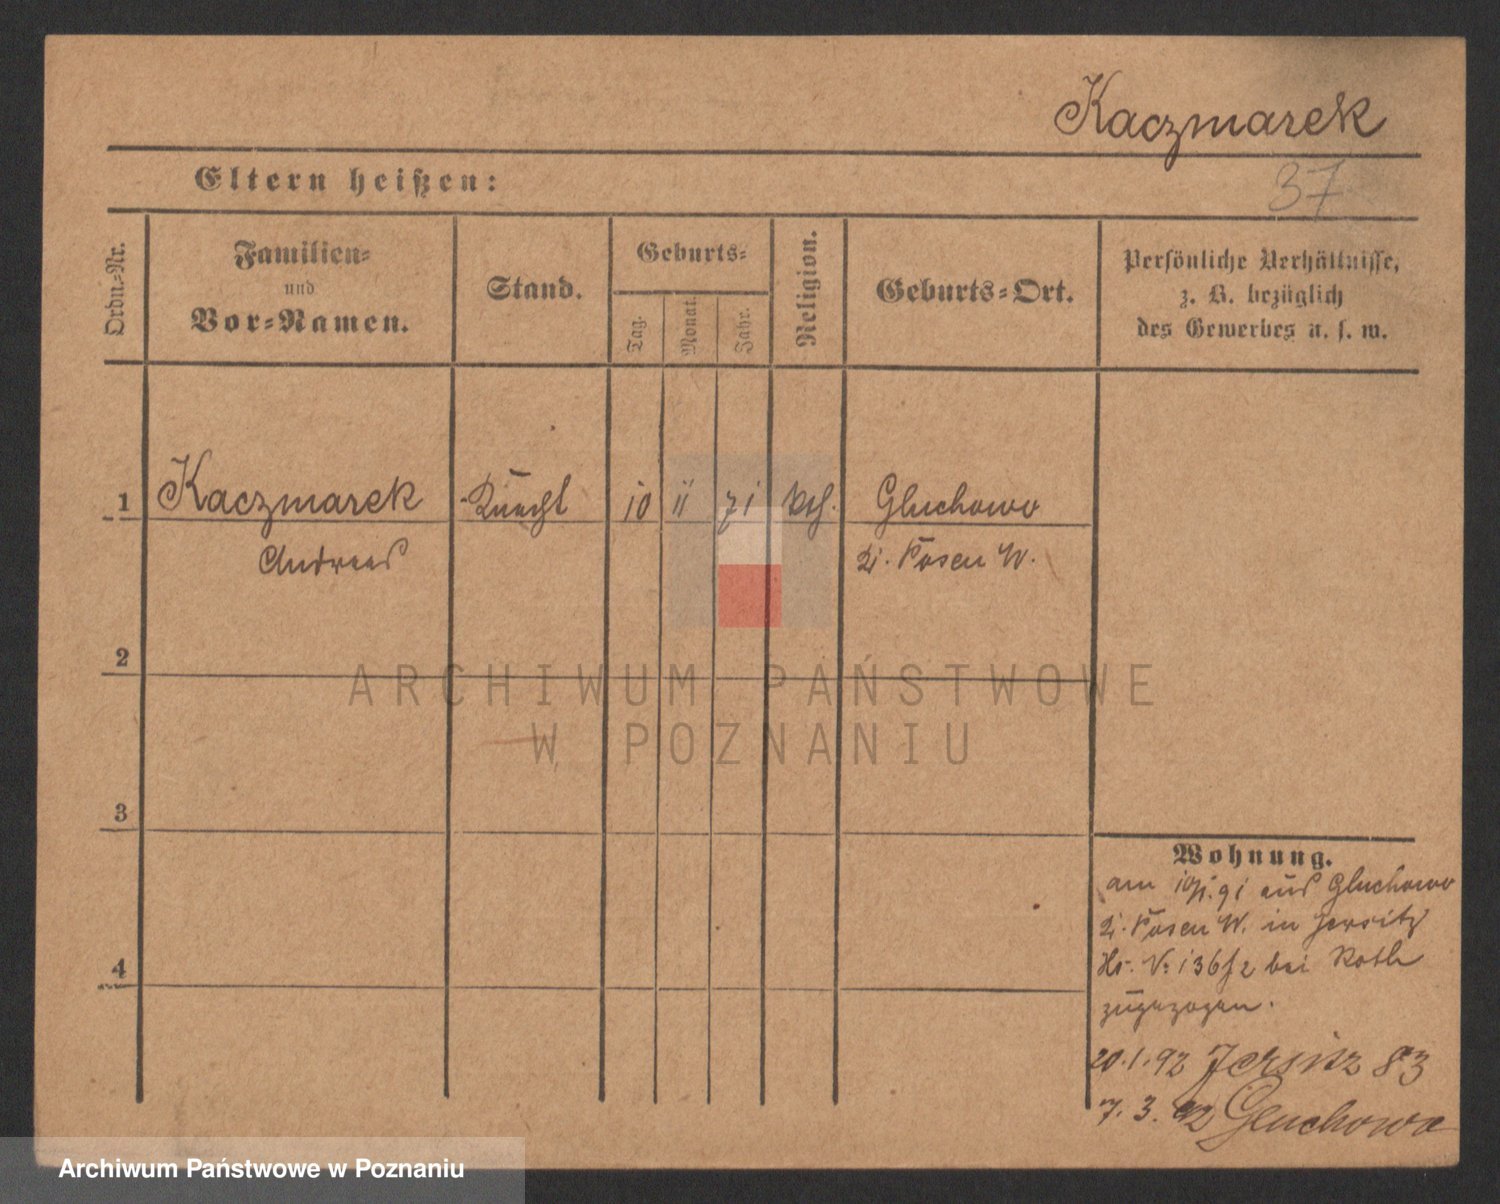 Kaczmarek
Eltern heißen:
37
Ordn.-Nr.
Familien-
und
Vor-Namen.
Stand.
Geburts-
Tag.
Monat.
Jahr.
Religion.
Geburts-Ort.
Persönliche Verhältnisse,
z. B. bezüglich
des Gewerbes u. s. w.
1 Kaczmarek Knecht 10 11 71 kth. Gluchowo
Andreas Kr. Posen W.
2
3
4
Wohnung.
am 91 aus Gluchowo
Kr. Posen W. in Jersitz
Hs. No 136/2 bei Roth
zugezogen.
20.1.92 Jersitz 83
7.3.92 Gluchowo
ARCHIWUM PAŃSTWOWE
W POZNANIU
Archiwum Państwowe w Poznaniu